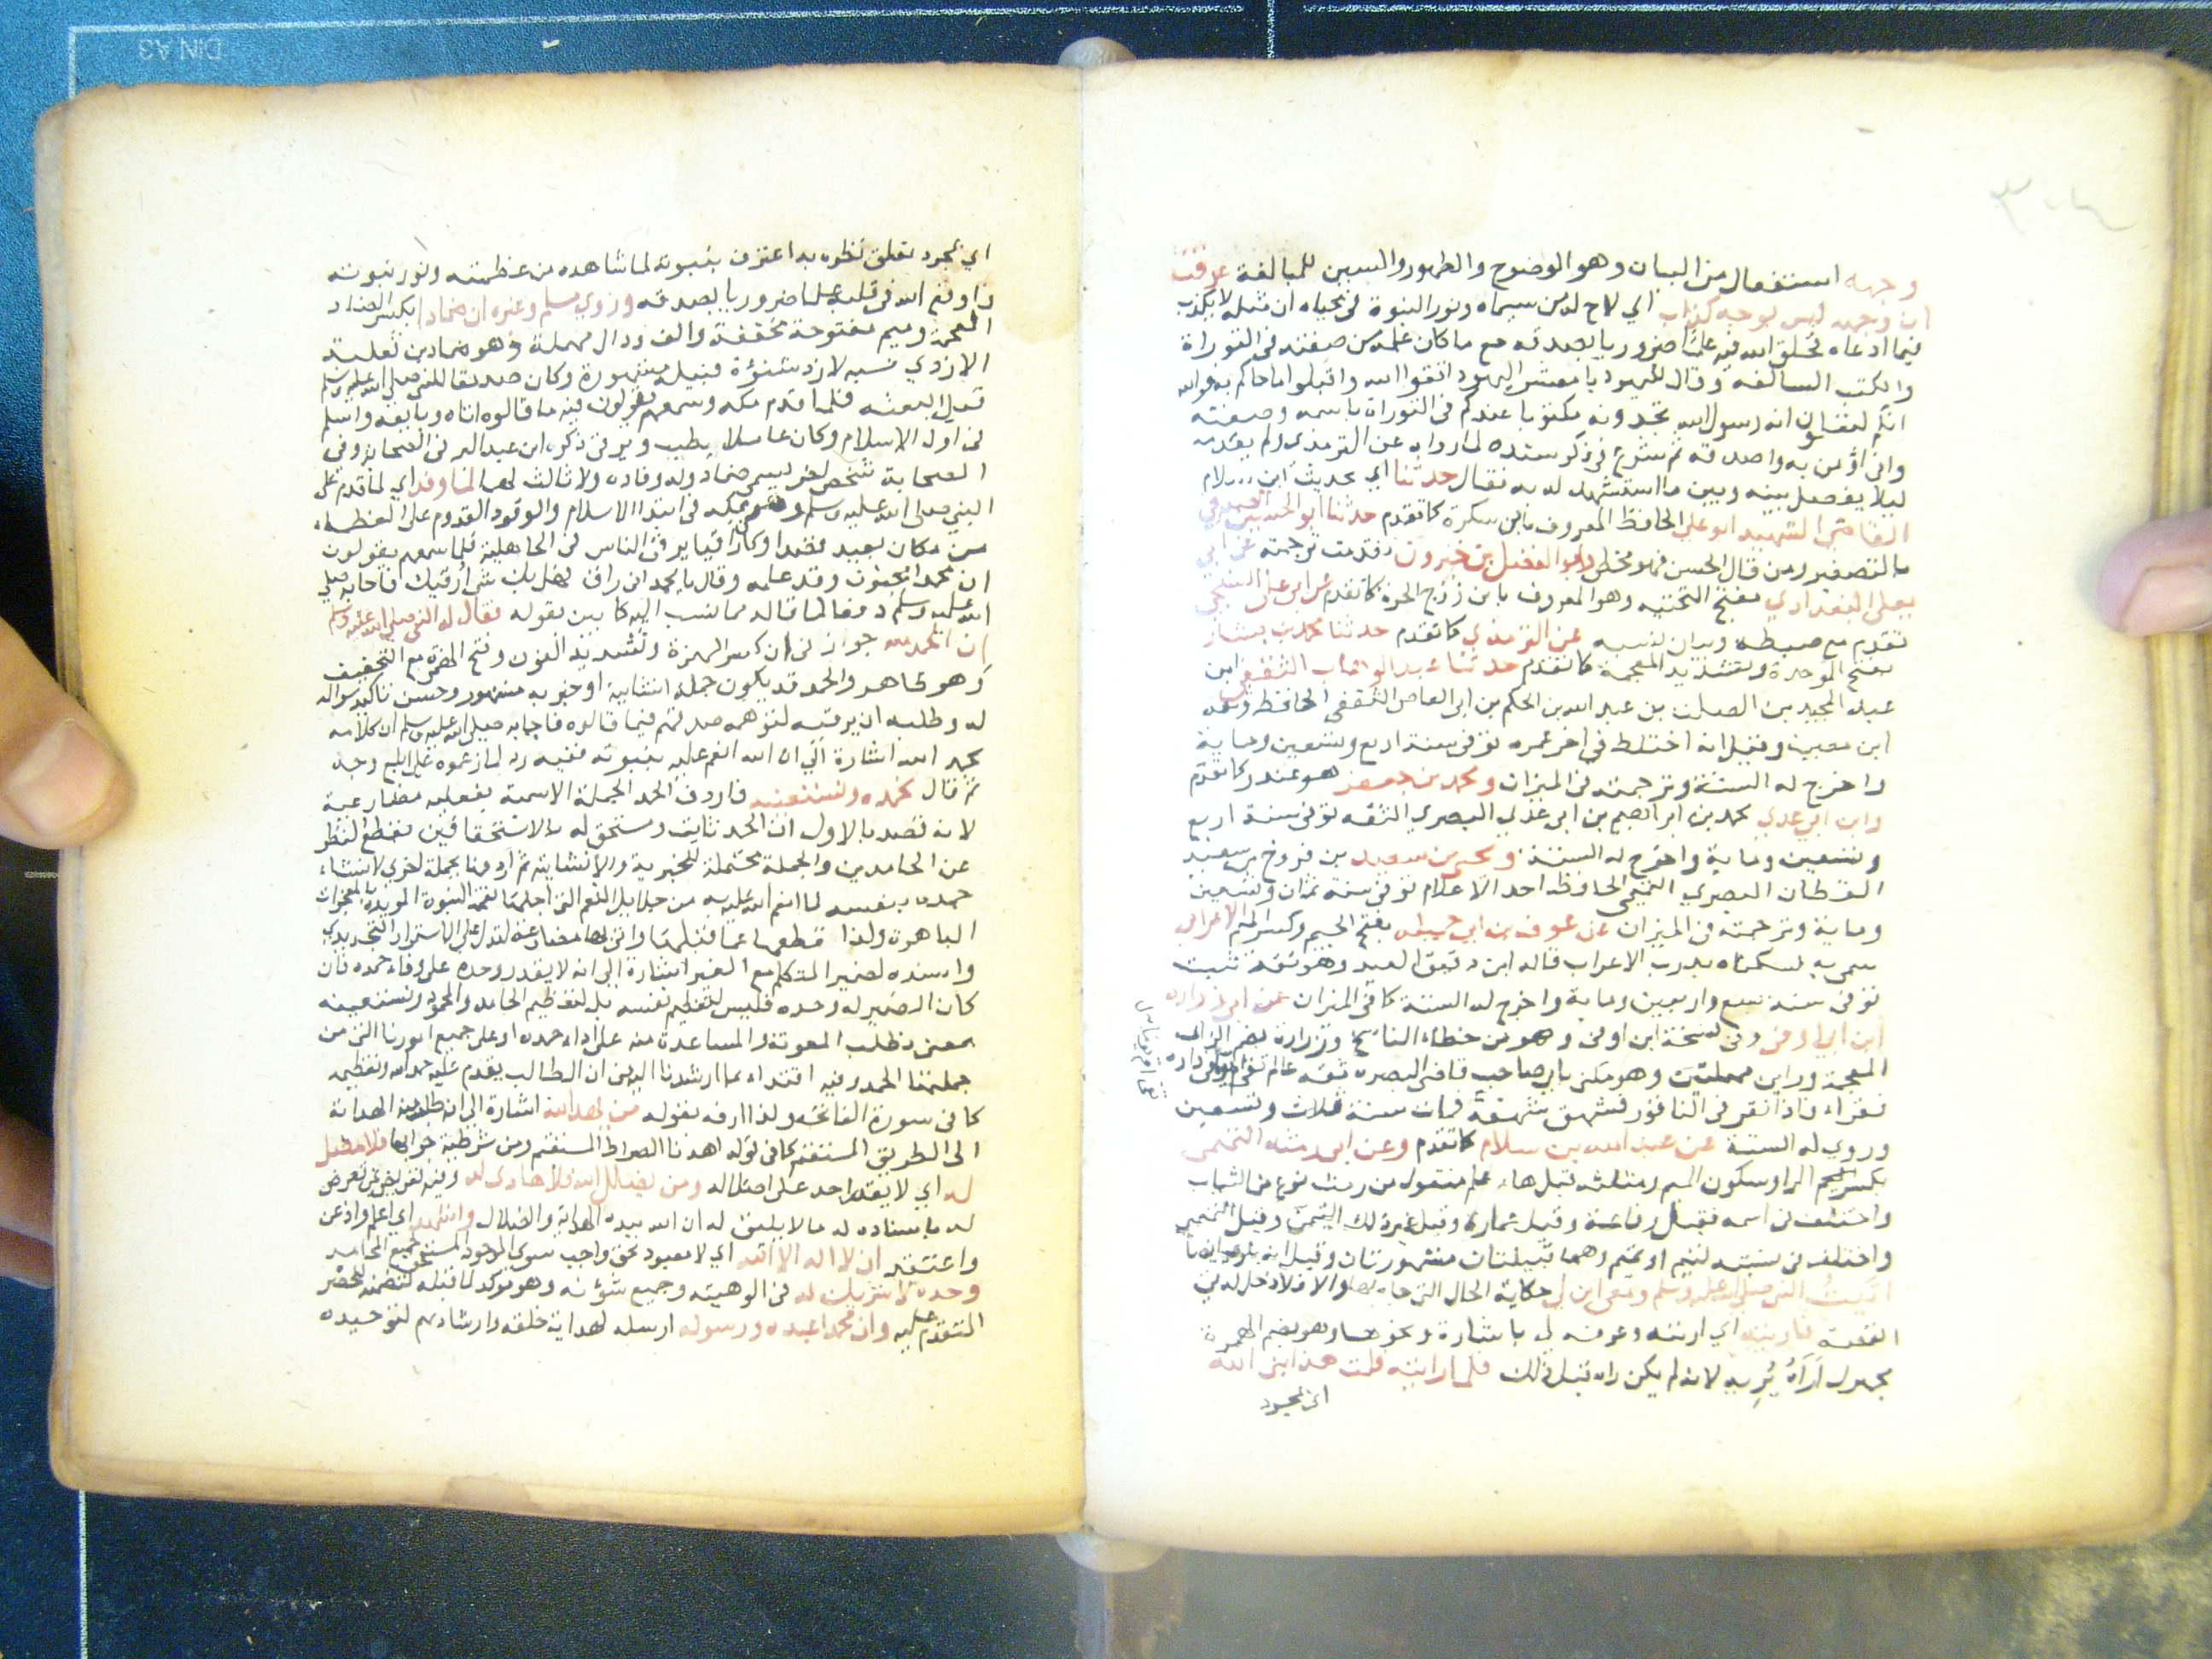 وجهه استفعال من البيان وهو الوضوح والظهور والسين للمبالغة عرفت
ان وجهه ليس بوجه كذاب اي لاح له من سيماه ونور النبوة في محياه ان مثله لا يكذب
فيما ادعاه فخلق الله فيه علما ضروريا بصدقه مع ما كان علمه من صفته في التوراة
والكتب السالفه وقال لليهود يا معشر اليهود اتقوا الله واقبلوا ما جاكم به فوالله
انكم لتعلمون انه رسول الله تجدونه مكتوبا عندكم في التوراة باسمه وصفته
واني اؤمن به واصدقه ثم شرع في ذكر سنده لما رواه عن الترمذي ولم يقدمه
ليلا يفصل بينه وبين ما استشهد له به فقال حدثنا اي بحديث ابن سلام
القاضي الشهيد ابو علي الحافظ المعروف بابن سكرة كما تقدم حدثنا ابو الحسين الصيرفي
بالتصغير ومن قال الحسن فهو مخطئ وابو الفضل بن خيرون وقدمت ترجمته عن ابي
يعلى البغدادي بفتح التحتيه وهو المعروف بابن زوج الحرة كما تقدم عن ابي علي السنجي
تقدم مع ضبطه وبيان نسبه عن الترمذي كما تقدم حدثنا محمد بن بشار
بفتح الموحدة وتشديد المعجمة كما تقدم حدثنا عبد الوهاب الثقفي ابن
عبد المجيد بن الصلت بن عبد الله بن الحكم بن ابي العاص الثقفي الحافظ وثقه
ابن معين وقيل انه اختلط في اخر عمره توفي سنة اربع وتسعين وماية
واخرج له الستة وترجمته في الميزان ومحمد بن جعفر هو غندر كما تقدم
وابن ابي عدي محمد بن ابراهيم بن ابي عدي البصري الثقه توفي سنة اربع
وتسعين وماية واخرج له الستة ويحيى بن سعيد بن فروخ بن سعيد
القطان البصري التميمي الحافظ احد الاعلام توفي سنة ثمان وتسعين
وماية وترجمته في الميزان عن عوف بن ابي جميله بفتح الجيم وكسر الميم الاعرابي
سمي به لسكناه بدرب الاعراب قاله ابن دقيق العيد وهو ثقة ثبت
توفي سنة سبع واربعين وماية واخرج له الستة كما في الميزان عن زراره
ابن ابي اوفى وفي نسخة ابن اوفى وهو من خطاء الناسخ وزرارة بضم الزاي
المعجمة وراين مهملتين وهو مكنى بابي حاجب قاضي البصره ثقه عالم
فقراء فاذا نقر في الناقور فشهق شهقة فمات سنة ثلاث وتسعين
وروي له الستة عن عبد الله بن سلام كما تقدم وعن ابي رمثه التيمي
بكسر الرا وسكون الميم ومثلثه قبل هاء علم منقول من رمث نوع من النبات
واختلف في اسمه فقيل رفاعة وقيل عمارة وقيل غير ذلك التيمي وقيل التميمي
واختلف في نسبته لتيم او تميم وهما قبيلتان مشهورتان
اتيت النبي صلى الله عليه وسلم ومعي ابن لي حكاية الحال التي جاء بها والا فلا دخل له في
القصة فاريته اي اريته وعرفه لي باشارة ونحوها وهو بضم الهمزة
مجهول اراه يريه لانه لم يكن راه قبل ذلك فلما رايته قلت هذا نبي الله
اي بمجرد
اي بمجرد تعلق نظره به اعترف بنبوته لما شاهده من عظمته ونور نبوته
واوقع الله في قلبه علما ضروريا بصدقه وروي مسلم وغيره ان ضمادا بكسر الضاد
المعجمة وميم مفتوحة مخففة والف ودال مهملة وهو ضماد بن ثعلبة
الازدي نسبه لازد شنؤة قبيلة مشهورة وكان صديقا للنبي صلى الله عليه وسلم
قبل البعثه فلما قدم مكه وسمعهم يقولون فيه ما قالوه اتاه وبايعه واسلم
في اول الاسلام وكان عاقلا يطب ويرقي ذكره ابن عبد البر في الصحابة وفي
الصحابة شخص اخر يسمى ضماد وله وفاده ولا ثالث لهما لما وفد اي لما قدم على
النبي صلى الله عليه وسلم وهو بمكه في ابتدا الاسلام والوفود القدوم على العظماء
من مكان بعيد قصدا وكان رقيا يرقي الناس في الجاهلية فلما سمعهم يقولون
ان محمدا مجنون وقد عليه وقال يا محمد اني راق فهل بك شي ارقيك فاجابه صلى
الله عليه وسلم دفعا لما قاله مما نسب اليه كما بين بقوله فقال له النبي صلى الله عليه وسلم
ان الحمد لله جواز في ان كسر الهمزة وتشديد النون وفتح الهمزة مع التخفيف
وهو ظاهر والحمد قد يكون جملة انشايية او خبرية مشهور وحسن تاكيد سواله
له وطلبه ان يرقيه لتوهمه صدقهم فيما قالوه فاجابه صلى الله عليه وسلم ان كلامه
بحمد الله اشارة الى ان الله انعم عليه بنبوته ففيه رد لما زعموه على ابلغ وجه
ثم قال نحمده ونستعينه فاردف الحمد الجملة الاسمية بفعليه مضارعية
لانه قصد بالاول ان الحمد ثابت ومستحق له بالاستحقاقين بقطع النظر
عن الحامدين والجملة محتملة للخبرية والانشاية ثم اردفها بجملة اخرى لانشاء
حمده بنفسه لما انعم الله عليه من جلايل النعم التي اجلها نعمة النبوة المويدة بالمعجزات
الباهرة ولذا قطعها عما قبلها واتى بها مضارعة لتدل على الاستمرار التجددي
واسنده لضمير المتكلم مع الغير اشارة الى انه لا يقدر وحده على وفاء حمده فان
كان الضمير له وحده فليس لتعظيم نفسه بل لتعظيم الحامد والمحمود ونستعينه
بمعنى نطلب المعونة والمساعدة منه على اداء حمده او على جميع امورنا التي من
جملتها الحمد وفيه اقتداء بما ارشدنا اليه من ان الطالب يقدم عليه حمد الله وتعظيمه
كما في سورة الفاتحه ولذا اردفه بقوله من يهد الله اشارة الى انه طلب منه الهداية
الى الطريق المستقيم كما في قوله اهدنا الصراط المستقيم ومن شرطية جوابها فلا مضل
له اي لا يقدر احد على اضلاله ومن يضلل الله فلا هادي له وفيه تعريض لمن تعرض
له باسناده له ما لا يليق له ان الله بيده الهداية والضلال واشهد اي اعلم واذعن
واعتقد ان لا اله الا الله اي لا معبود بحق واجب سوى الموجود المستحق لجميع المحامد
وحده لا شريك له في الوهيته وجميع شؤنه وهو موكد لما قبله لتضمنه للحصر
المتقدم عليه وان محمدا عبده ورسوله ارسله لهداية خلقه وارشادهم لتوحيده